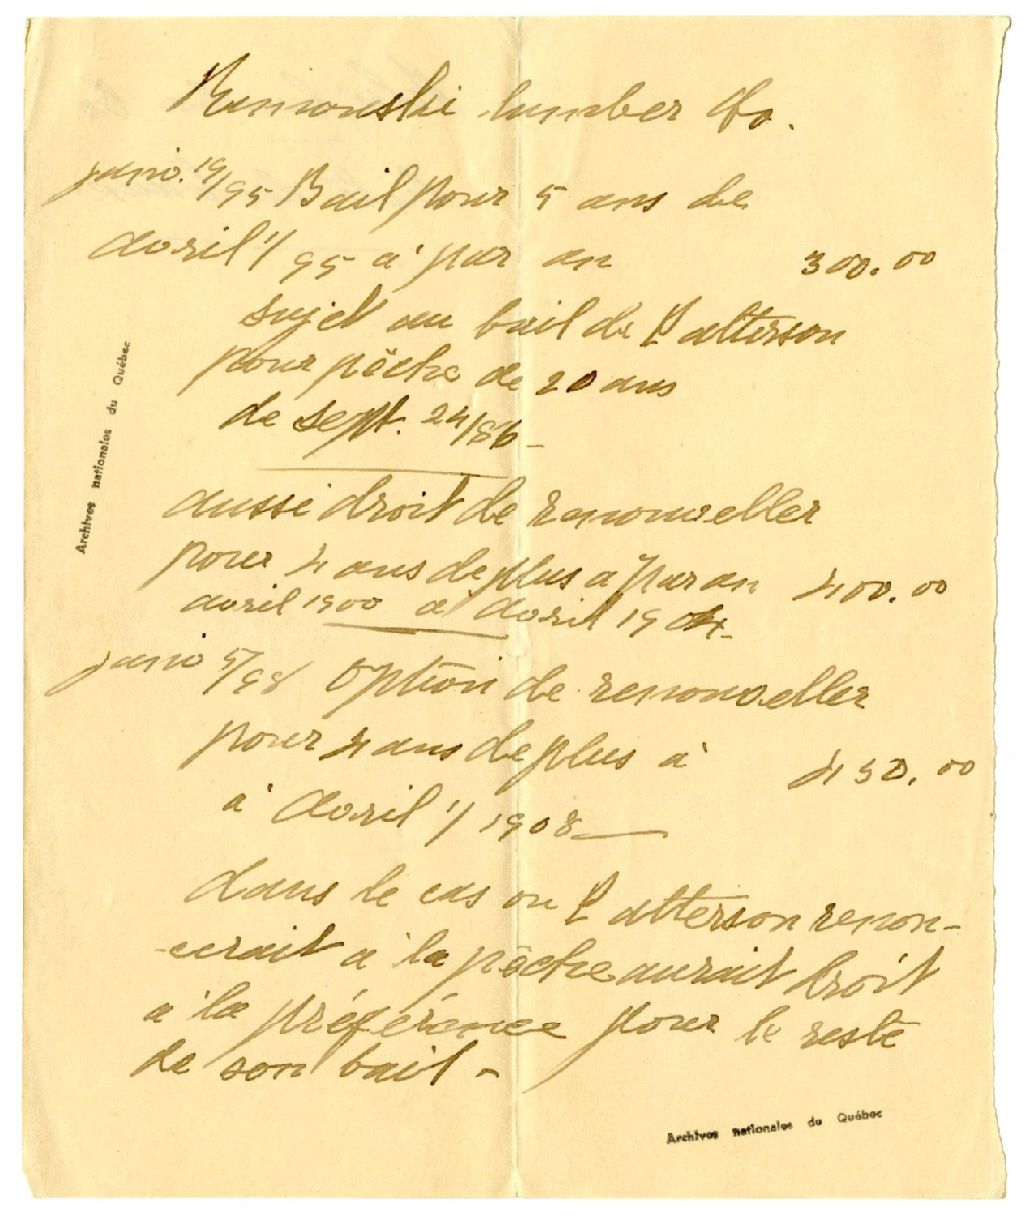 Rimouski lumber Co.
janv. 19/95 Bail pour 5 ans de
avril 1/95 à par an 300.00
sujet au bail de Patterson
pour pêche de 20 ans
de sept. 24/86 -
aussi droit de renouveller
pour 4 ans de plus à par an 400.00
avril 1900 à avril 1904
janv 5/98 Option de renouveller
pour 4 ans de plus à 450.00
à avril 1/1908
dans le cas ou Patterson renon-
-cerait à la pêche aurait droit
à la préférence pour le reste
de son bail -
Archives nationales du Québec
Archives nationales du Québec